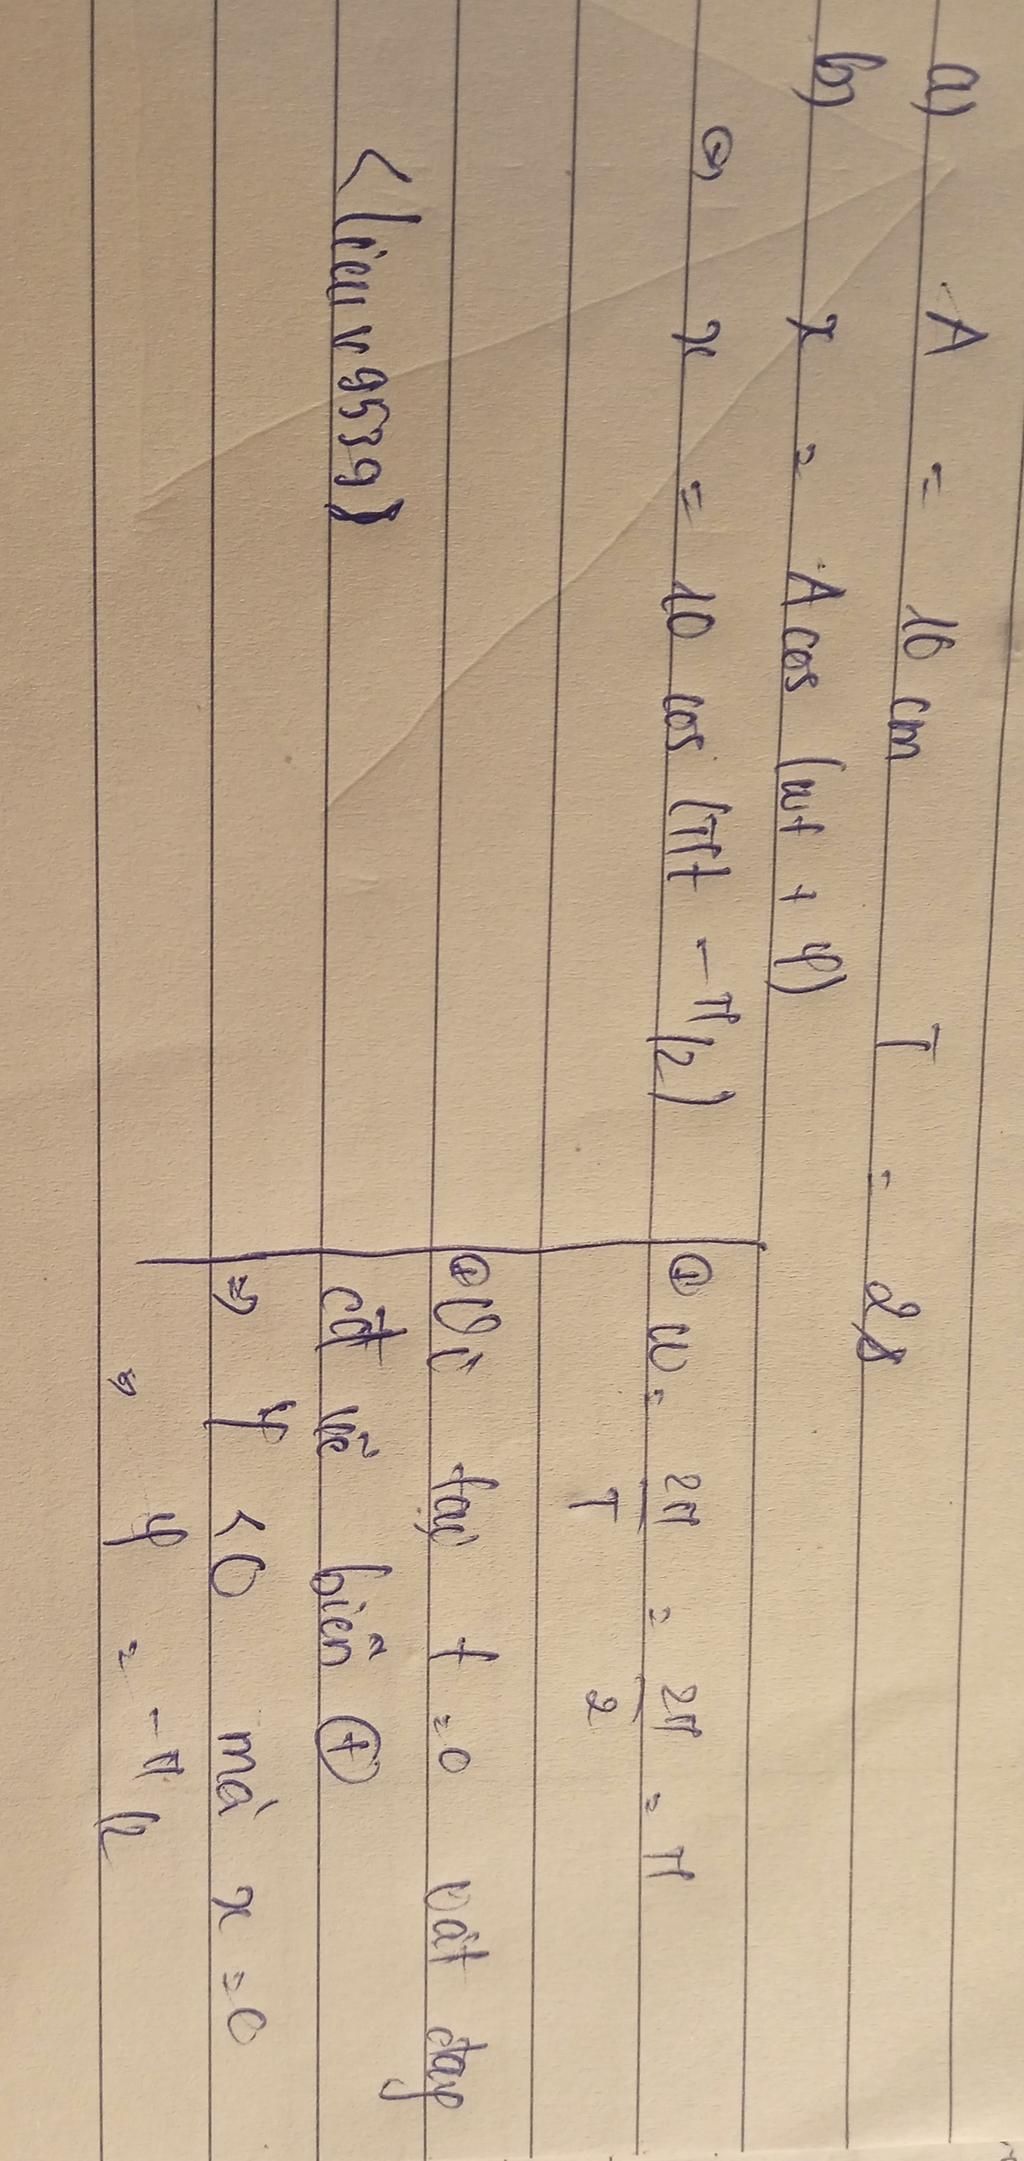 a) A = 10 cm T = 2s
b) x = A cos (ωt + φ)
x = 10 cos (πt - π/2)
<lieu v9539}
⊕ ω = 2π/T = 2π/2 = π
⊕ Vì tại t = 0 vật
cđ về biên ⊕
=> φ < 0 mà x = 0
φ = -π/2